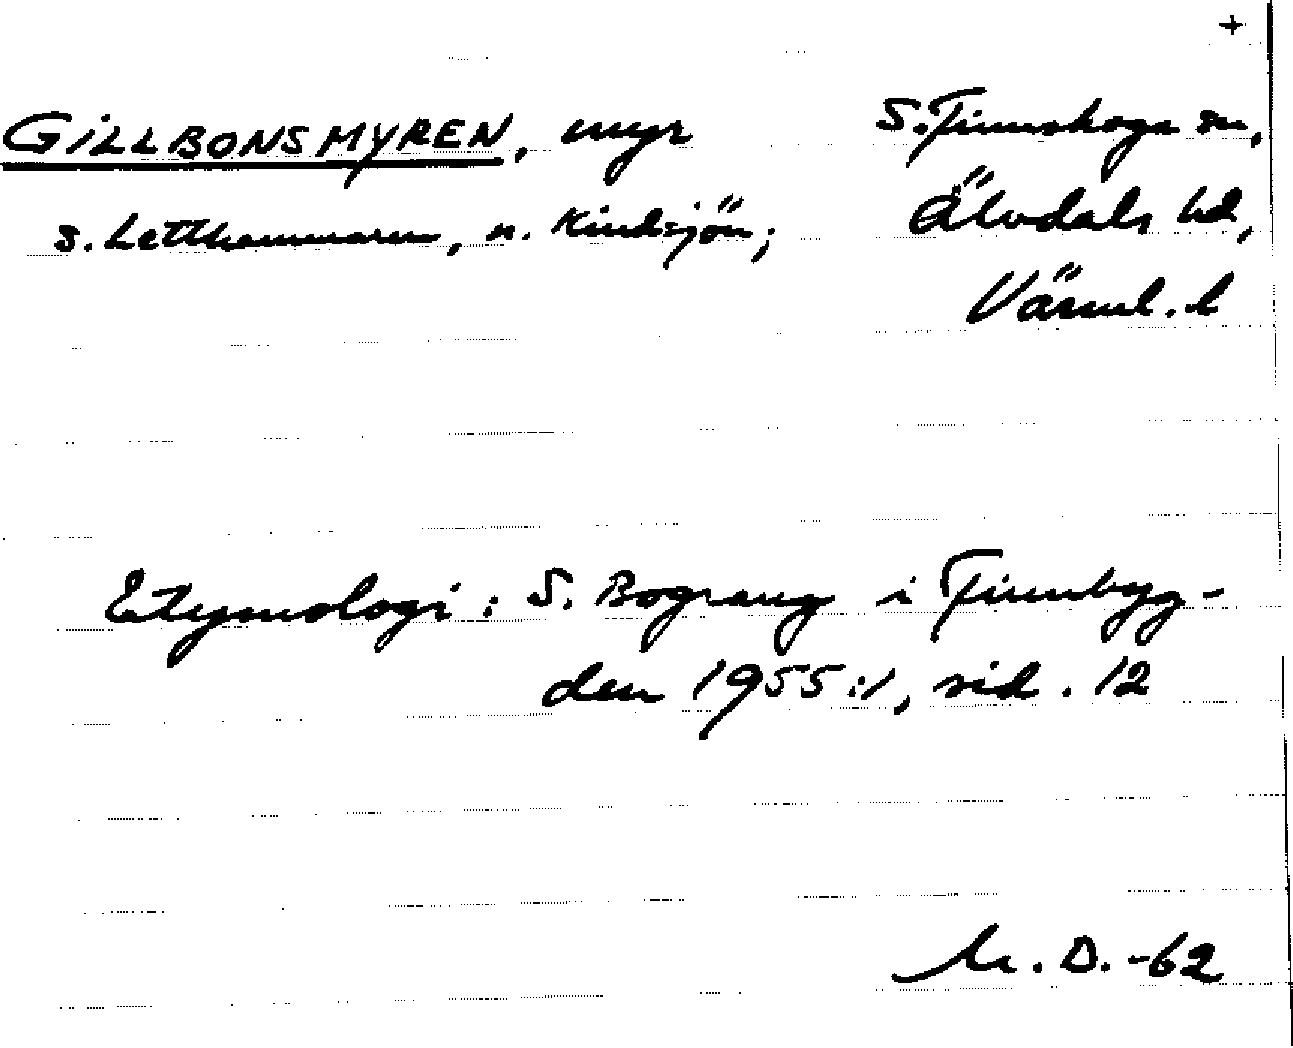 +
GILLBONSMYREN, myr
s. Letthammaren, n. Kindsjön;
S. Finnskoga sn,
Älvdals hd,
Värml. l
Etymologi: S. Bograng i Finnbyg-
den 1955:1, sid. 12
M. D. -62